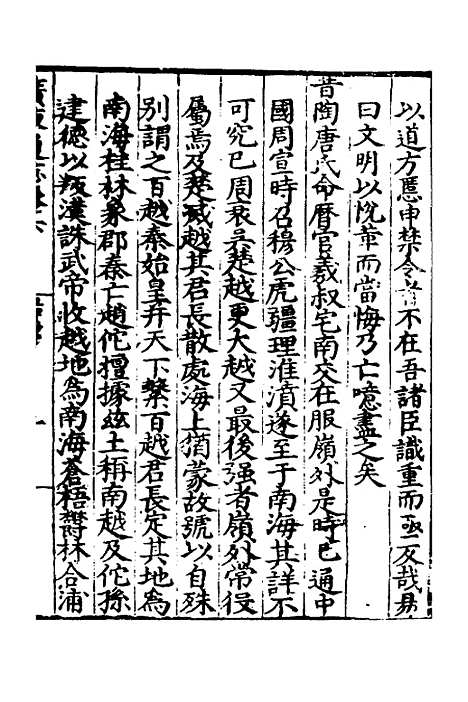 以道方慝申禁令者不在吾諸臣識重而亟反哉易
曰文明以悅革而當悔乃亡噫盡之矣
昔陶唐氏命曆官羲叔宅南交在服嶺外是時已通中
國周宣時召穆公虎疆理淮濆遂至于南海其詳不
可究已周衰吳楚越更大越又最後强者嶺外常役
屬焉及楚威越其君長散處海上猶蒙故號以自殊
別謂之百越秦始皇幷天下繫百越君長定其地為
南海桂林象郡秦亡趙佗擅據兹土稱南越及佗孫
建德以叛漢誅武帝收越地為南海蒼梧鬱林合浦